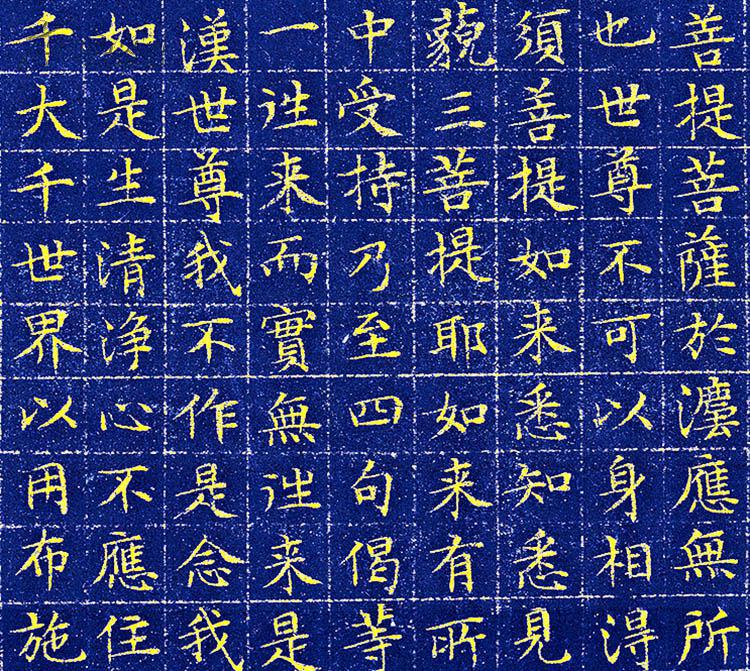 菩提菩薩於灋應無所
也世尊不可以身相得
須菩提如来悉知悉見
藐三菩提耶如来有所
中受持乃至四句偈等
一往来而實無往来是
漢世尊我不作是念我
如是生清浄心不應住
千大千世界以用布施